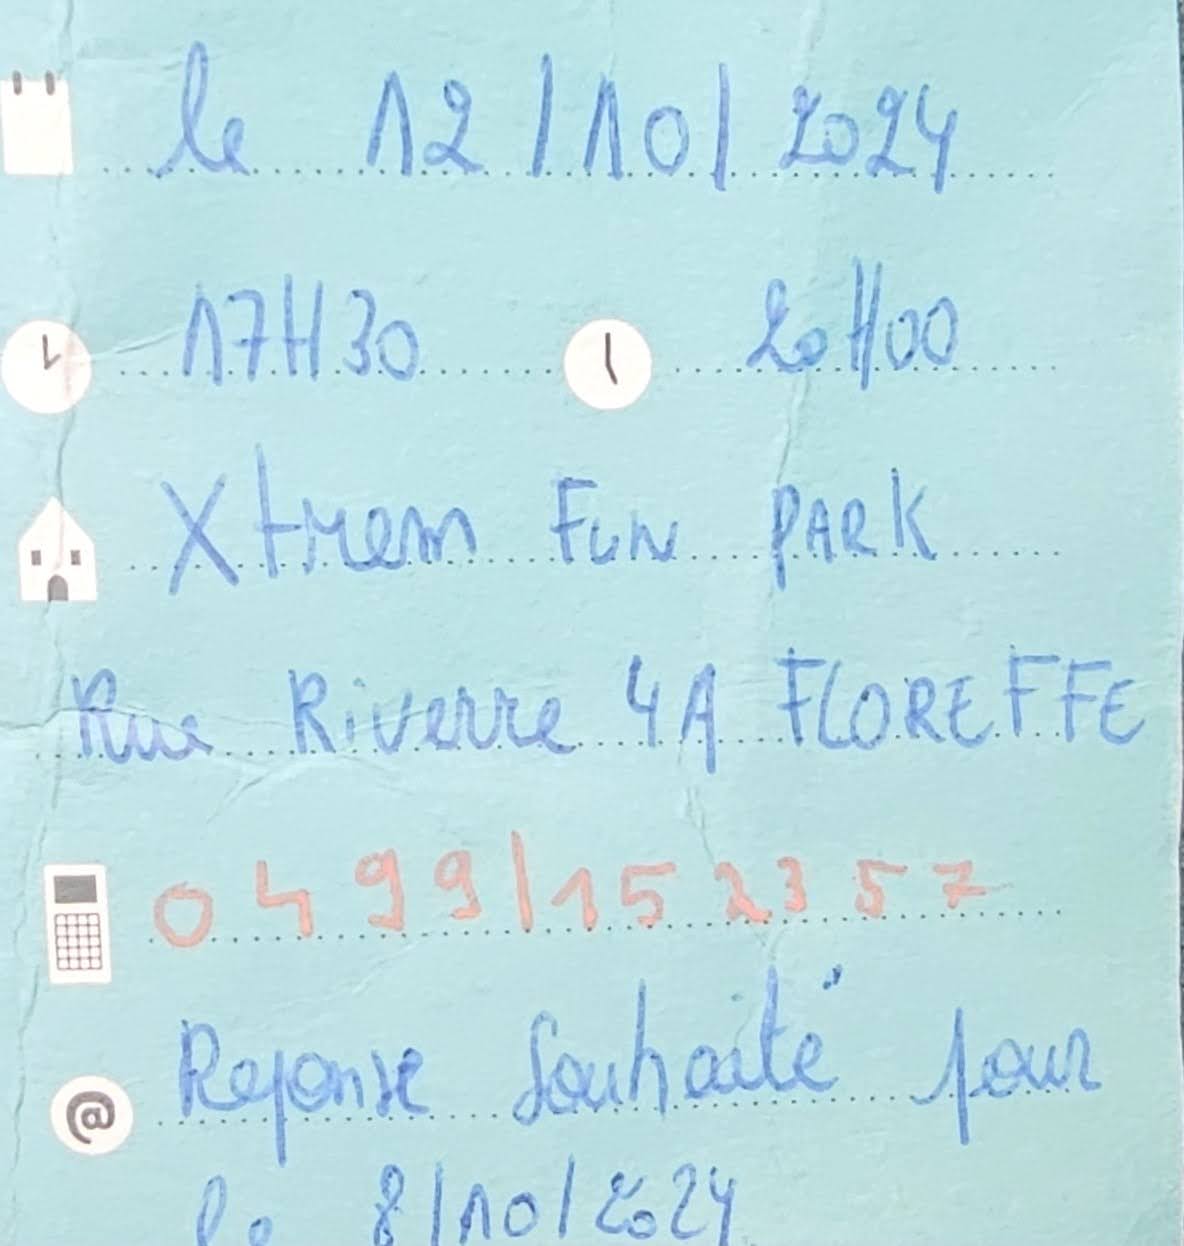 le 12/10/2024
17H30 20H00
Xtrem Fun PARK
Rue Riverre 4A FLOREFFE
0499/152357
@ Reponse souhaité pour
le 8/10/2024